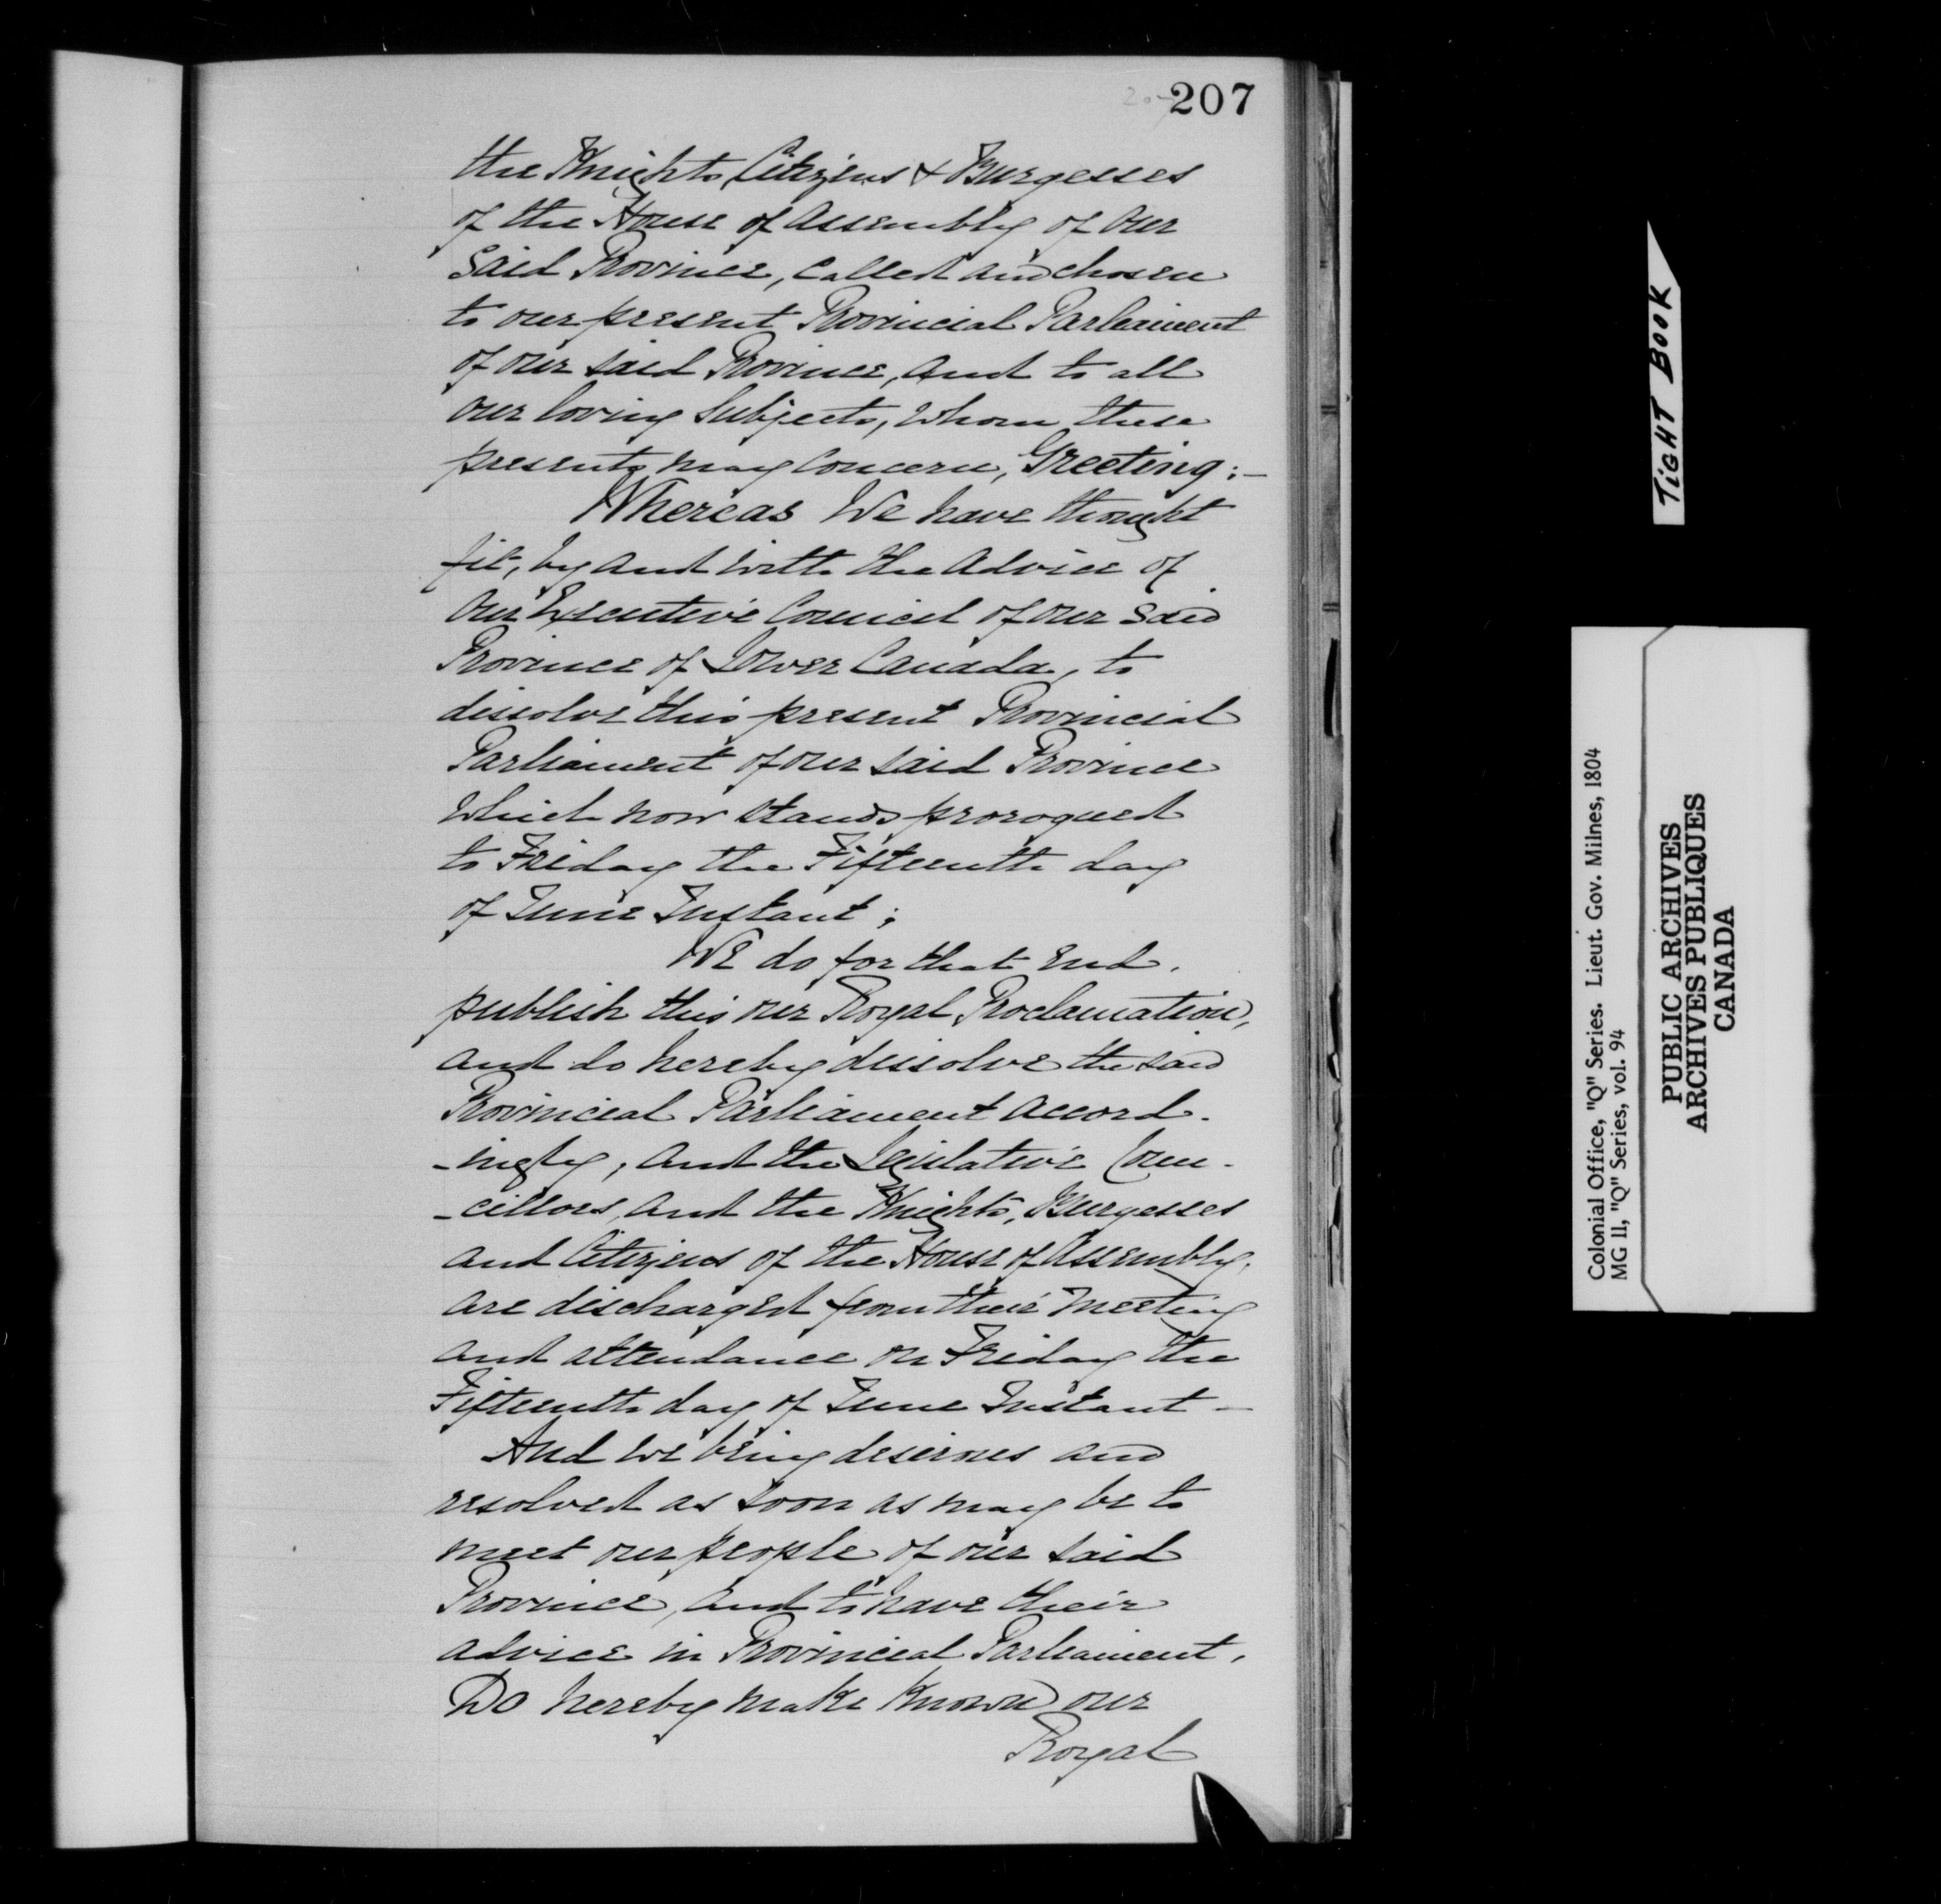 207
the Knights, Citizens & Burgesses
of the House of Assembly of our
said Province, called and chosen
to our present Provincial Parliament
of our said Province, and to all
our loving Subjects, whom these
presents may concern, Greeting:—
Whereas We have thought
fit, by and with the advice of
our Executive Council of our said
Province of Lower Canada, to
dissolve this present Provincial
Parliament of our said Province
which now stands prorogued
to Friday the Fifteenth day
of June Instant;
We do for that end,
publish this our Royal Proclamation,
and do hereby dissolve the said
Provincial Parliament accord-
-ingly, and the Legislative Coun-
-cillors, and the Knights, Burgesses
and Citizens of the House of Assembly,
are discharged from their meeting
and attendance on Friday the
Fifteenth day of June Instant—
And we being desirous and
resolved as soon as may be to
meet our people of our said
Province, and to have their
advice in Provincial Parliament,
Do hereby make known our
Royal
TIGHT BOOK
Colonial Office, "Q" Series. Lieut. Gov. Milnes, 1804
MG 11, "Q" Series, vol. 94
PUBLIC ARCHIVES
ARCHIVES PUBLIQUES
CANADA